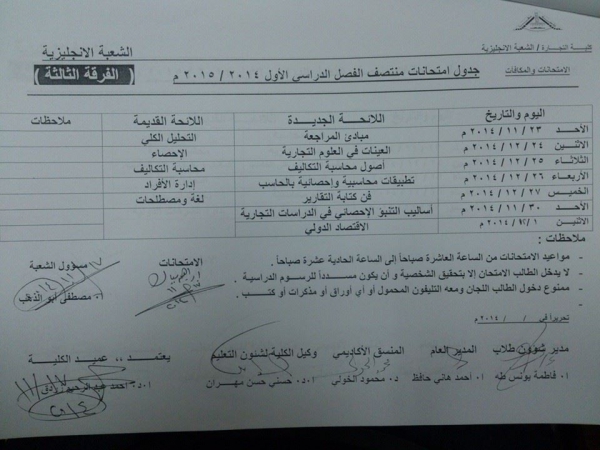 كلية التجارة / الشعبة الإنجليزية
الشعبة الانجليزية
الامتحانات والمكافآت
جدول امتحانات منتصف الفصل الدراسي الأول ٢٠١٤ / ٢٠١٥ م
( الفرقة الثالثة )
اليوم والتاريخ اللائحة الجديدة اللائحة القديمة ملاحظات
الأحد ٢٣ / ١١ / ٢٠١٤ م مبادئ المراجعة التحليل الكلي
الاثنين ٢٤ / ١٢ / ٢٠١٤ م العينات في العلوم التجارية الإحصاء
الثلاثاء ٢٥ / ١٢ / ٢٠١٤ م أصول محاسبة التكاليف محاسبة التكاليف
الأربعاء ٢٦ / ١٢ / ٢٠١٤ م تطبيقات محاسبية وإحصائية بالحاسب إدارة الأفراد
الخميس ٢٧ / ١٢ / ٢٠١٤ م فن كتابة التقارير لغة ومصطلحات
الأحد ٣٠ / ١١ / ٢٠١٤ م أساليب التنبؤ الإحصائي في الدراسات التجارية
الاثنين ١ / ٢٠١٤ م الاقتصاد الدولي
ملاحظات :
- مواعيد الامتحانات من الساعة العاشرة صباحاً إلى الساعة الحادية عشرة صباحاً .
- لا يدخل الطالب الامتحان إلا بتحقيق الشخصية و أن يكون مسدداً للرسوم الدراسية .
- ممنوع دخول الطالب اللجان ومعه التليفون المحمول أو أي أوراق أو مذكرات أو كتب .
الامتحانات مسؤول الشعبة
أ. مصطفى أبو الدهب
تحريراً في / / ٢٠١٤ م
مدير شؤون طلاب المدير العام المنسق الأكاديمي وكيل الكلية لشئون التعليم يعتمد ،، عميد الكلية
أ. فاطمة يونس طه أ. أحمد هاني حافظ د. محمود الخولي ا.د. حسني حسن مهران ا.د. أحمد عبد الرحيم